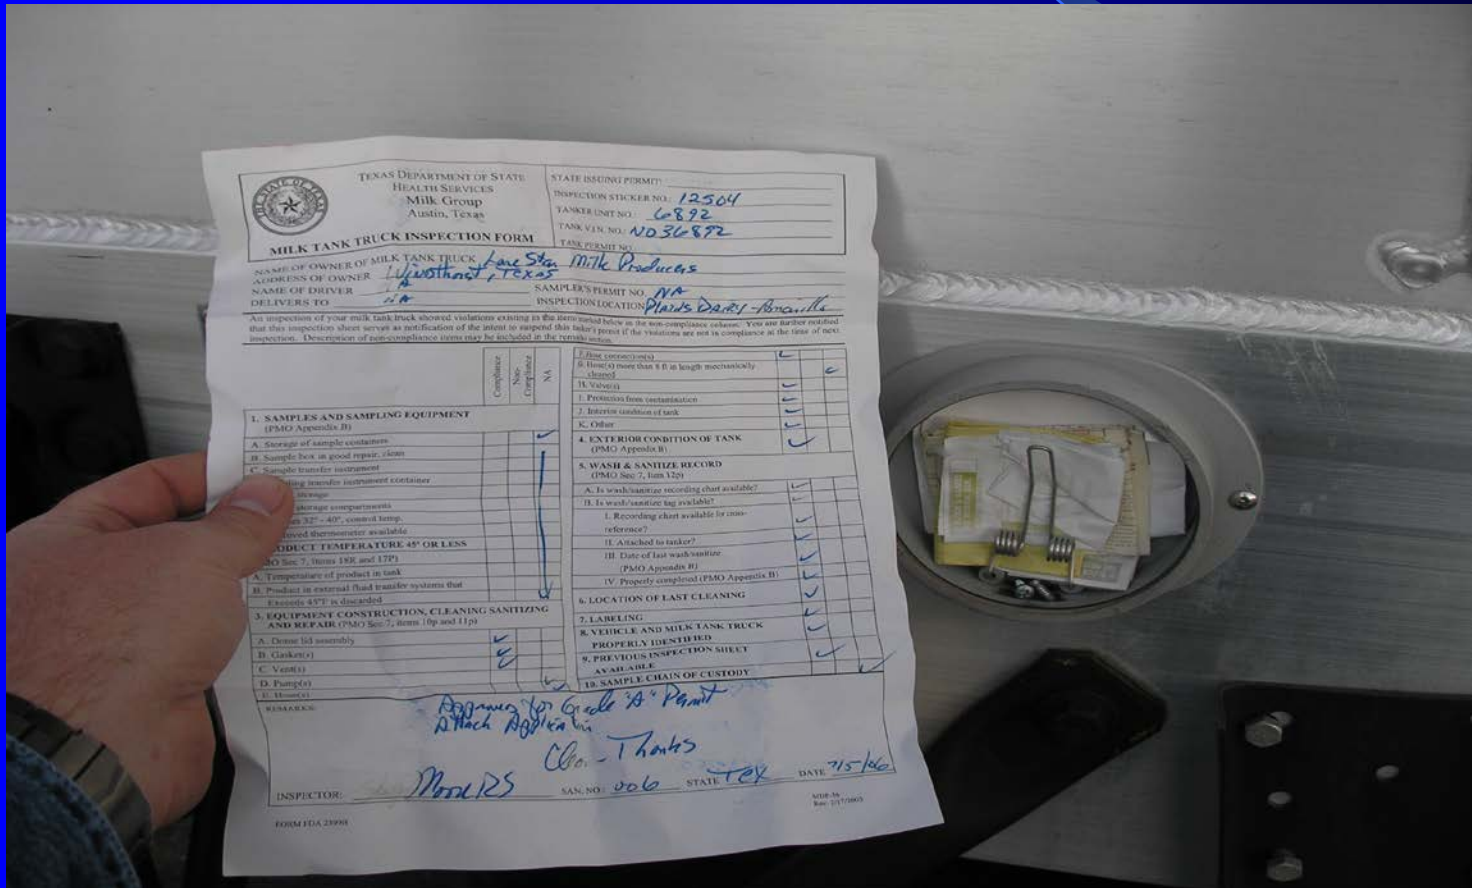 THE STATE OF TEXAS
TEXAS DEPARTMENT OF STATE
HEALTH SERVICES
Milk Group
Austin, Texas
MILK TANK TRUCK INSPECTION FORM
STATE ISSUING PERMIT:
INSPECTION STICKER NO.: 12504
TANKER UNIT NO.: 6892
TANK V.I.N. NO.: ND36892
TANK PERMIT NO.
NAME OF OWNER OF MILK TANK TRUCK Lone Star Milk Producers
ADDRESS OF OWNER Windthorst, Texas
NAME OF DRIVER
SAMPLER'S PERMIT NO. NA
DELIVERS TO NA
INSPECTION LOCATION Plains Dairy - Amarillo
An inspection of your milk tank truck showed violations existing in the items marked below in the non-compliance column. You are further notified
that this inspection sheet serves as notification of the intent to suspend this tanker's permit if the violations are not in compliance at the time of next
inspection. Description of non-compliance items may be included in the remarks section.
Compliance
Non-Compliance
NA
1. SAMPLES AND SAMPLING EQUIPMENT
(PMO Appendix B)
A. Storage of sample containers
B. Sample box in good repair, clean
C. Sample transfer instrument
transfer instrument container
storage
storage compartments
32° - 40°, control temp.
thermometer available
PRODUCT TEMPERATURE 45° OR LESS
Sec 7, Items 18R and 17P)
A. Temperature of product in tank
B. Product in external fluid transfer systems that
Exceeds 45°F is discarded
3. EQUIPMENT CONSTRUCTION, CLEANING SANITIZING
AND REPAIR (PMO Sec 7, items 10p and 11p)
A. Dome lid assembly
B. Gasket(s)
C. Vent(s)
D. Pump(s)
E. Hose(s)
F. Hose connection(s)
G. Hose(s) more than 8 ft in length mechanically
cleaned
H. Valve(s)
I. Protection from contamination
J. Interior condition of tank
K. Other
4. EXTERIOR CONDITION OF TANK
(PMO Appendix B)
5. WASH & SANITIZE RECORD
(PMO Sec 7, Item 12p)
A. Is wash/sanitize recording chart available?
B. Is wash/sanitize tag available?
I. Recording chart available for cross-
reference?
II. Attached to tanker?
III. Date of last wash/sanitize
(PMO Appendix B)
IV. Properly completed (PMO Appendix B)
6. LOCATION OF LAST CLEANING
7. LABELING
8. VEHICLE AND MILK TANK TRUCK
PROPERLY IDENTIFIED
9. PREVIOUS INSPECTION SHEET
AVAILABLE
10. SAMPLE CHAIN OF CUSTODY
REMARKS:
for Grade "A" Permit
Attach
Thanks
INSPECTOR: Moore RS
SAN. NO.: 006
STATE Tex
DATE 7/5/06
Rev. 1/17/2003